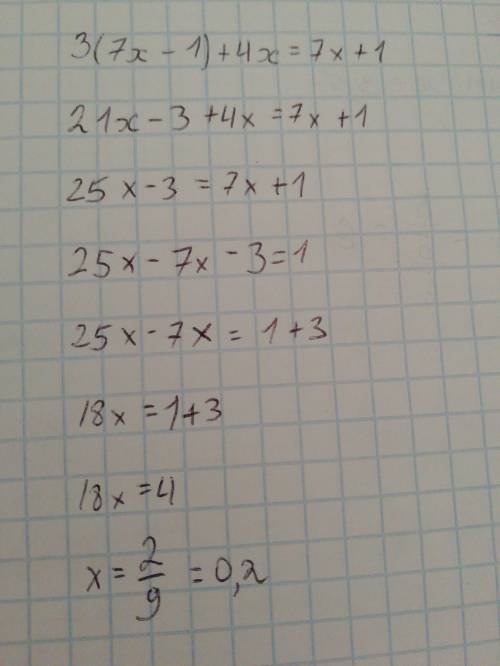 3(7x - 1) + 4x = 7x + 1
21x - 3 + 4x = 7x + 1
25x - 3 = 7x + 1
25x - 7x - 3 = 1
25x - 7x = 1 + 3
18x = 1 + 3
18x = 4
x = 2/9 = 0,2